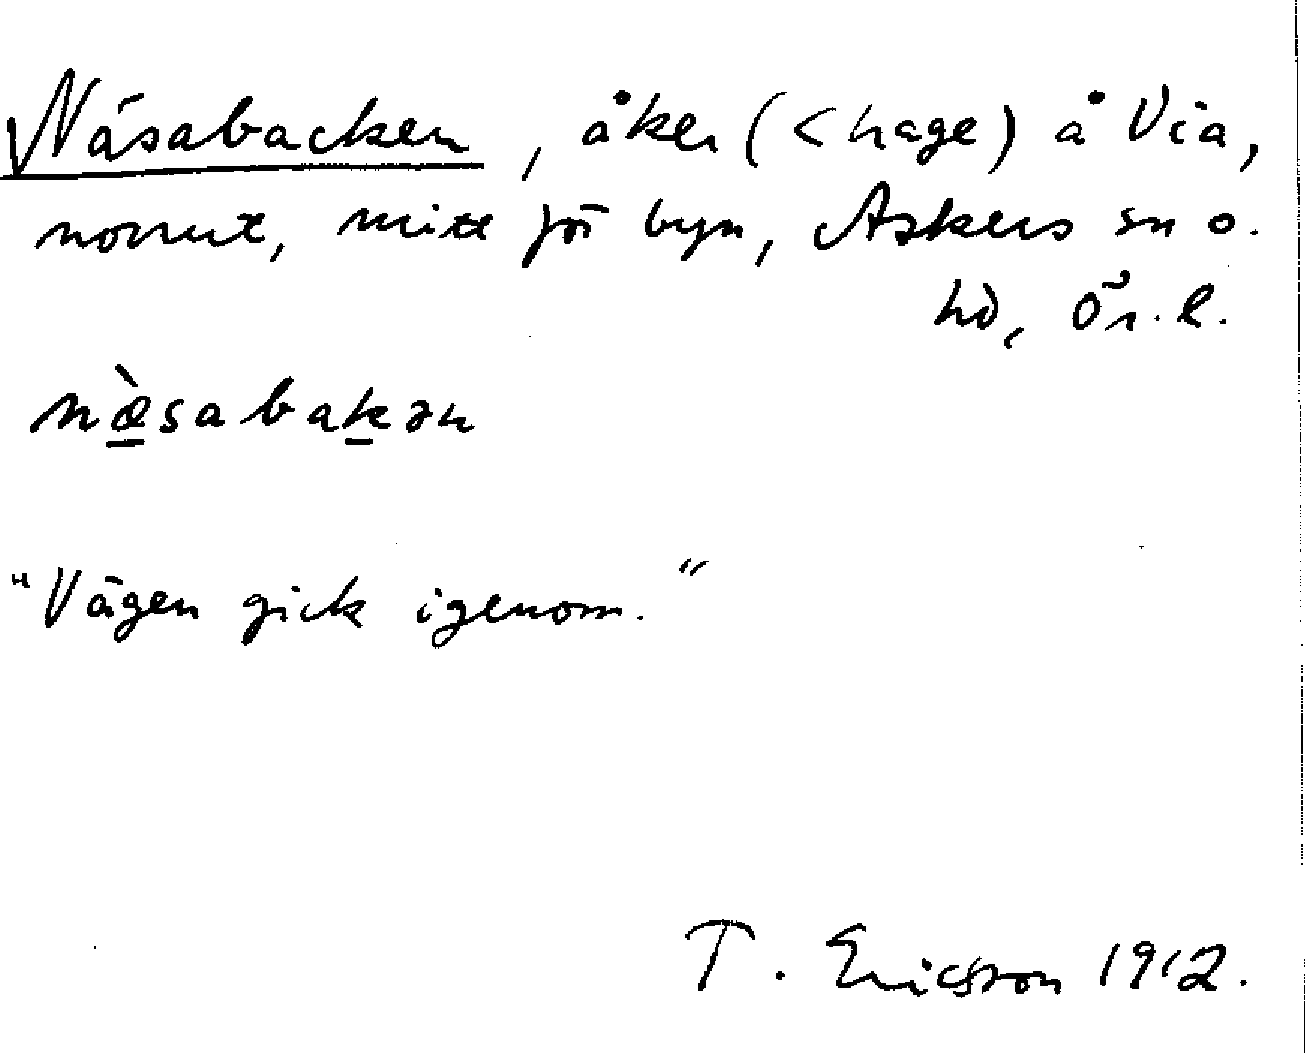 Näsabacken, åker (< hage) å Via,
norrut, mitt för byn, Askers sn o.
hd, Ör. l.
næ̀sabakən
"Vägen gick igenom."
T. Ericsson 1912.